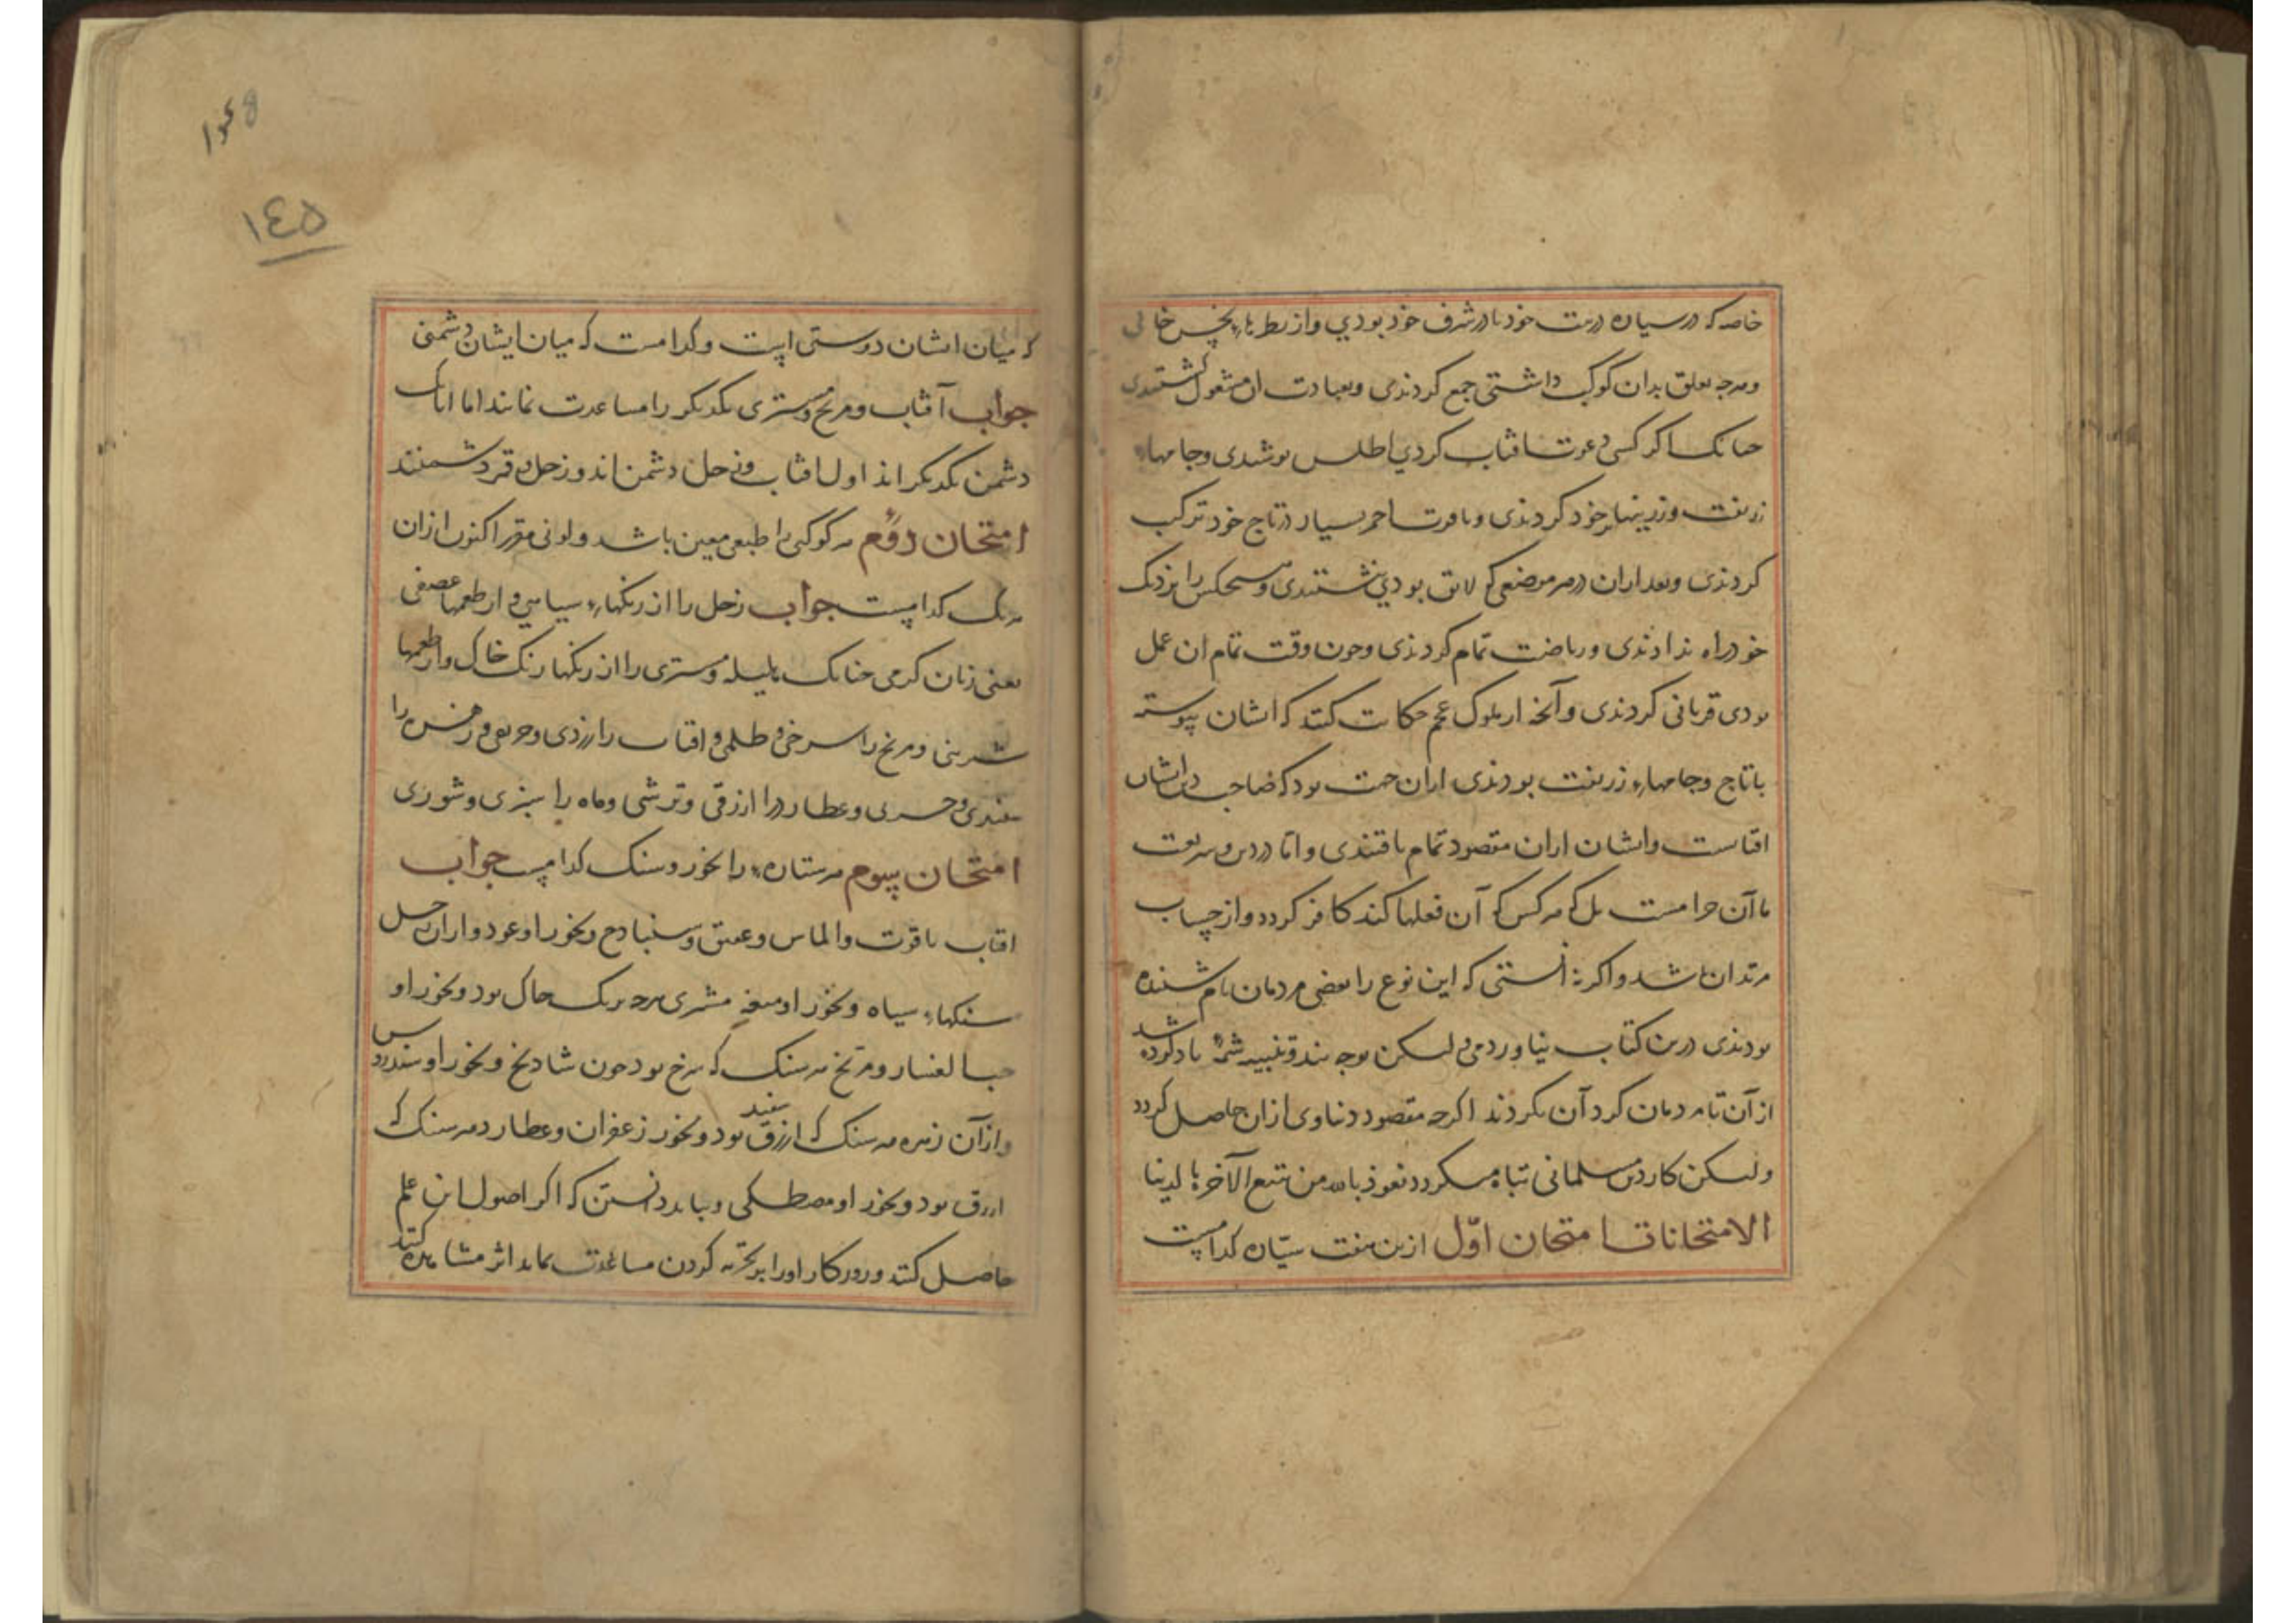 خاصه که در سیاره در بیت خود یا در شرف خود بودی و از نظرهای نحس خالی
و هرچه تعلق بدان کوکب داشتی جمع کردندی و بعبادت ان مشغول گشتندی
چنانک اگر کسی دعوت افتاب کردی اطلس پوشیدی و جامهاء
زربفت و زرینها بر خود کردندی و یاقوت احمر بسیار در تاج خود ترکیب
کردندی و بعد از ان در هر موضعی که لایق بودی بنشستندی و هیچکس را نزدیک
خود راه ندادندی و ریاضت تمام کردندی و چون وقت تمام ان عمل
بودی قربانی کردندی و آنچه از ملوک عجم حکایت کنند که ایشان پیوسته
با تاج و جامهاء زربفت بودندی از ان جهت بود که صاحب ایشان
افتابست و ایشان از ان مقصود تمام یافتندی و اما در دین و شریعت
ما آن حرامست بل که هر کس که آن فعلها کند کافر گردد و از حساب
مرتدان باشد و اگر نه انستی که این نوع را بعضی مردمان نام شنیده
بودندی درین کتاب نیاوردمی و لیکن بوجه پند و تنبیه شمهٔ یاد کرده شد
از آن تا مردمان گرد آن نگردند اگرچه مقصود دنیاوی از ان حاصل گردد
و لیکن کار دین مسلمانی تباه میگردد نعوذ بالله من تبیع الآخرة بالدنیا
الامتحانات امتحان اوّل ازین هفت سیّاره کدامست
که میان ایشان دوستی است و کدامست که میان ایشان دشمنی
جواب آفتاب و مریخ و مشتری یکدیگر را مساعدت نمایند اما انانک
دشمن یکدیگر اند اول افتاب و زحل دشمن اند و زحل و قمر دشمنند
امتحان دوُم هر کوکبی را طبعی معین باشد و لونی مقرر اکنون از ان
هر یک کدامست جواب زحل را از رنگها سیاهی و از طعمها عفصی
یعنی زبان گز می چنانک هلیله و مشتری را از رنگها رنگ خاک و از طعمها
شیرینی و مریخ را سرخی و طلخی و افتاب را زردی و حریفی و زهره را
سفیدی و چربی و عطارد را ازرقی و ترشی و ماه را سبزی و شوری
امتحان سیوم هر ستارهٔ را بخور و سنگ کدامست جواب
افتاب یاقوت و الماس و عقیق و سنبادج و بخور او عود و از ان زحل
سنگهاء سیاه و بخور او میعه مشتری هرچه برنگ خاک بود و بخور او
حب الغار و مریخ هر سنگ که سرخ بود چون شادنج و بخور او سندروس
و از آن زهره هر سنگ که ازرق سفید بود و بخور زعفران و عطارد هر سنگ که
ازرق بود و بخور او مصطکی و بباید دانستن که اگر اصول این علم
حاصل کنند و روزگار او را بر تجربه کردن مساعدت نماید اثر مشاهده کنند
١٤٥